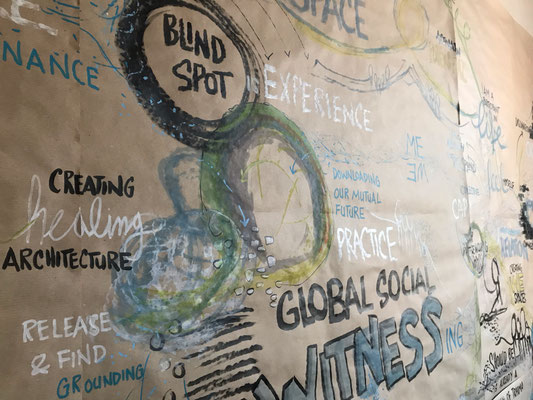 SPACE
BLIND
SPOT
NANCE
EXPERIENCE
ME
WE
DOWNLOADING
OUR MUTUAL
FUTURE
CREATING
healing
ARCHITECTURE
PRACTICE
life
GLOBAL SOCIAL
WITNESSING
RELEASE
& FIND
GROUNDING